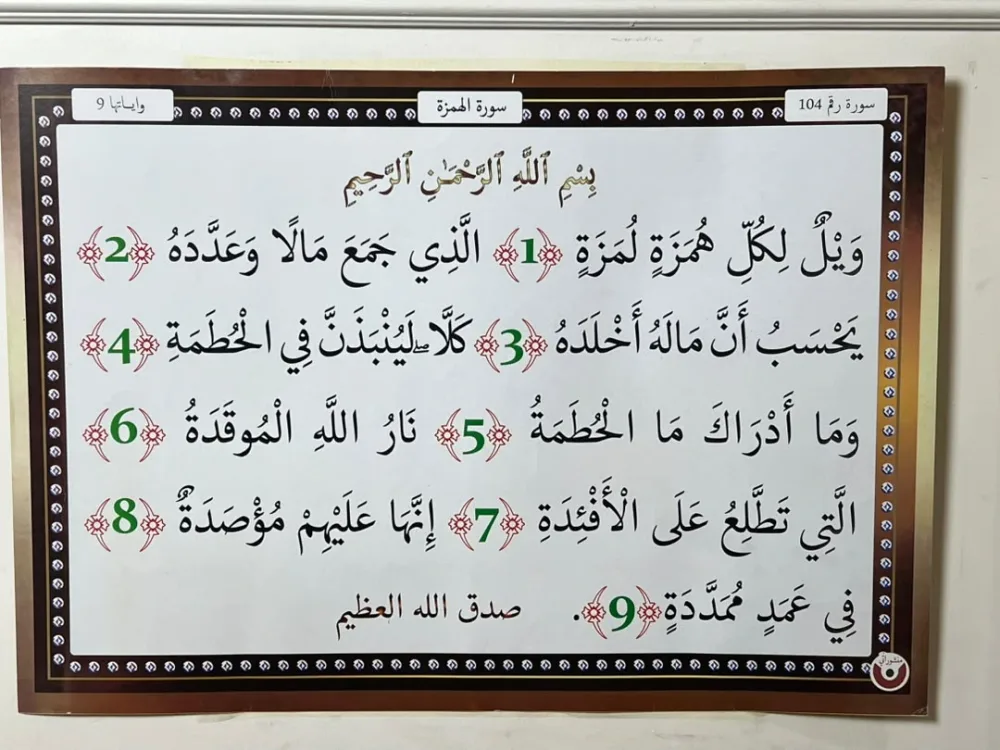 سورة رقم 104
سورة الهمزة
واياتها 9
بِسْمِ ٱللَّهِ ٱلرَّحْمَـٰنِ ٱلرَّحِيمِ
وَيْلٌ لِكُلِّ هُمَزَةٍ لُمَزَةٍ ﴿1﴾ الَّذِي جَمَعَ مَالًا وَعَدَّدَهُ ﴿2﴾
يَحْسَبُ أَنَّ مَالَهُ أَخْلَدَهُ ﴿3﴾ كَلَّا ۖ لَيُنْبَذَنَّ فِي الْحُطَمَةِ ﴿4﴾
وَمَا أَدْرَاكَ مَا الْحُطَمَةُ ﴿5﴾ نَارُ اللَّهِ الْمُوقَدَةُ ﴿6﴾
الَّتِي تَطَّلِعُ عَلَى الْأَفْئِدَةِ ﴿7﴾ إِنَّهَا عَلَيْهِمْ مُؤْصَدَةٌ ﴿8﴾
فِي عَمَدٍ مُمَدَّدَةٍ ﴿9﴾. صدق الله العظيم